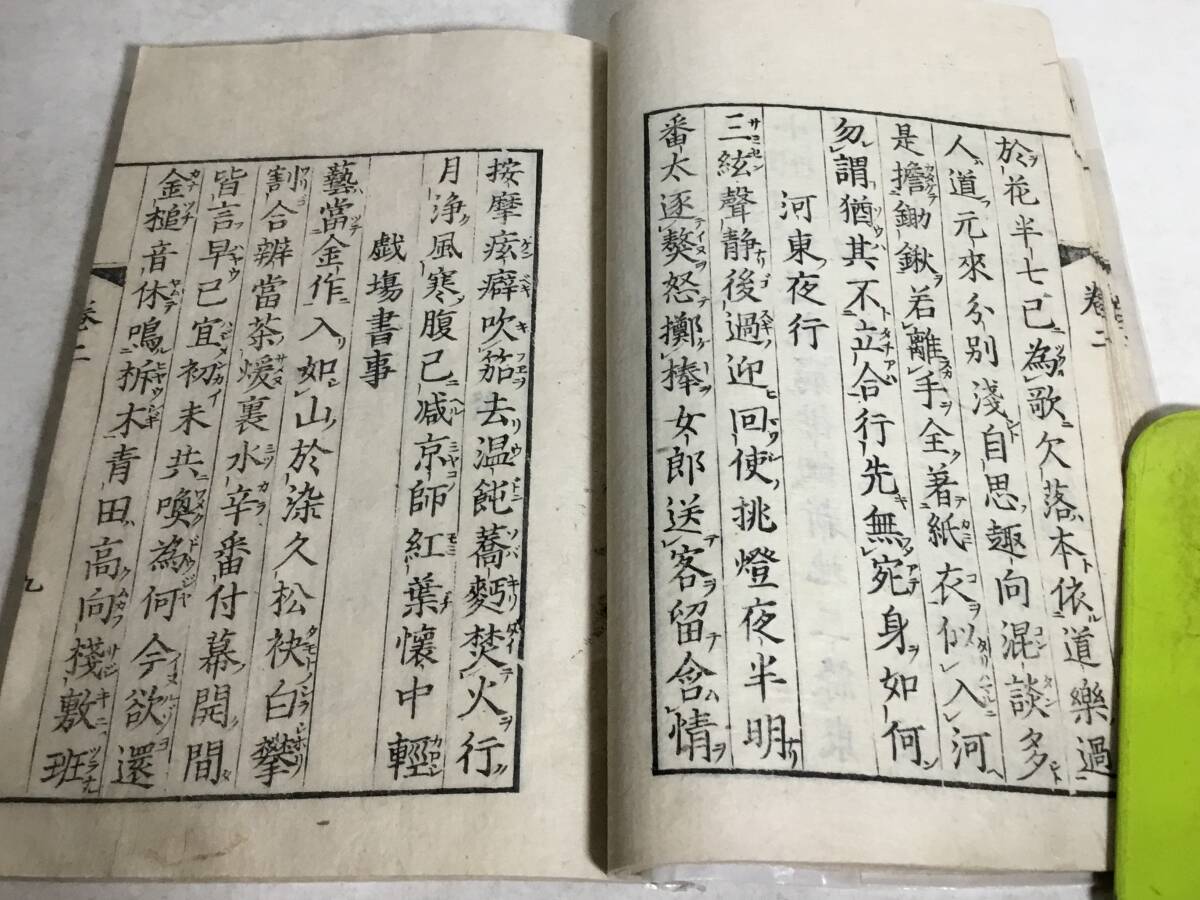 於花半七已為歌欠落本依道樂過
人道元來分別淺自思趣向混談多
是擔鋤鍬若離手全著紙衣似入河
勿謂猶其不立合行先無宛身如何
河東夜行
三絃聲静後過迎回使挑燈夜半明
番太逐獒怒擲捧女郎送客留含情
卷二
按摩痃癖吹笳去温飩蕎麪焚火行
月浄風寒腹已减京師紅葉懷中輕
戯塲書事
藝當金作入如山於染久松袂白攀
割合辨當茶煖裏水辛番付幕開間
皆言早已宜初未共喚為何今欲還
金槌音休鳴柝木青田高向棧敷班
卷二
九